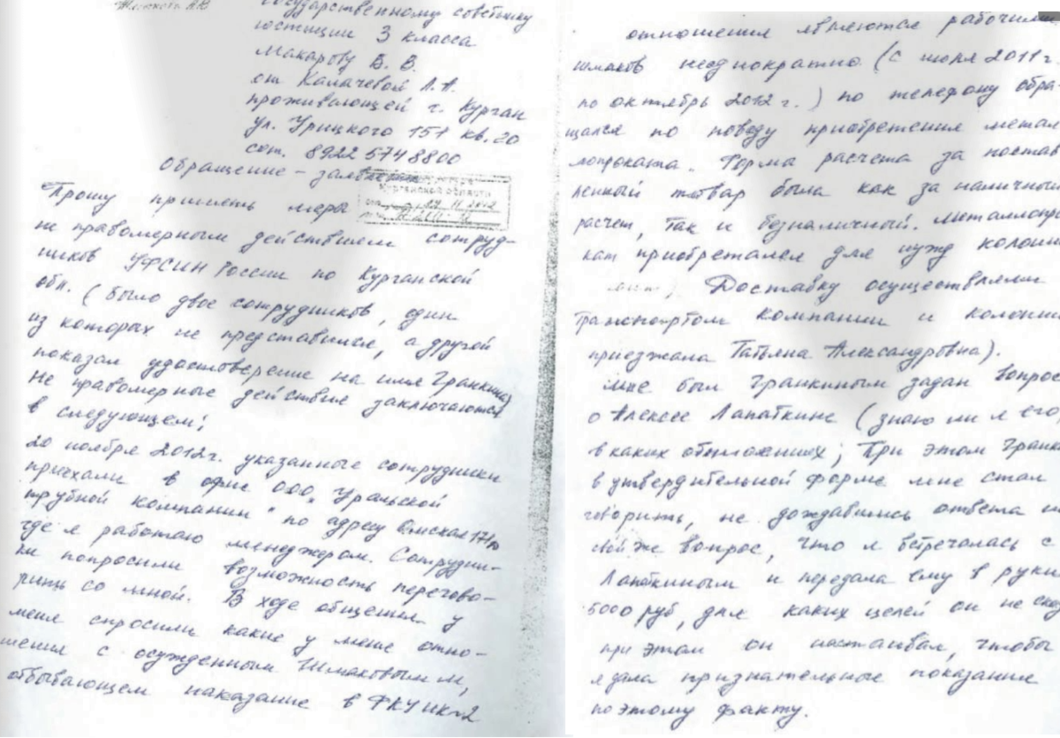 государственному советнику
юстиции 3 класса
Макарову В. В.
от Калачевой Л.А.
проживающей г. Курган
ул. Урицкого 151 кв. 20
сот. 8922 5748800
Обращение - заявление
Курганской области
Прошу принять меры
не правомерным действием сотруд-
ников УФСИН России по Курганской
обл. (было двое сотрудников, один
из которых не представился, а другой
показал удостоверение на имя Гранкина)
Не правомерные действия заключаются
в следующем:
20 ноября 2012г. указанные сотрудники
приехали в офис ООО "Уральской
трубной компании" по адресу Омская
где я работаю менеджером. Сотрудни-
ки попросили возможность перегово-
рить со мной. В ходе общения у
меня спросили какие у меня отно-
шения с осужденным Шмаковым М,
отбывающем наказание в ФКУ ИК-2
отношения являются рабочими
шмаков неоднократно (с июля 2011г.
по октябрь 2012г.) по телефону обра-
щался по поводу приобретения метал
лопроката. Форма расчета за постав
ленный товар была как за наличный
расчет, так и безналичный. Металлопро
кат приобретался для нужд колонии
Доставку осуществляли
транспортом компании и колонии
приезжала Татьяна Александровна).
Мне был Гранкиным задан вопрос
о Алексее Лапаткине (знаю ли я его,
в каких отношениях; При этом Гранк
в утвердительной форме мне стал
говорить, не дождавшись ответа на
же вопрос, что я встречалась с
Лапаткиным и передала ему в руки
5000 руб, для каких целей он не ска
при этом он настаивал, чтобы
я дала признательные показание
по этому факту.